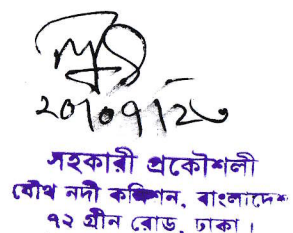 ২০/০৭/২৩
সহকারী প্রকৌশলী
যৌথ নদী কমিশন, বাংলাদেশ
৭২ গ্রীন রোড, ঢাকা।